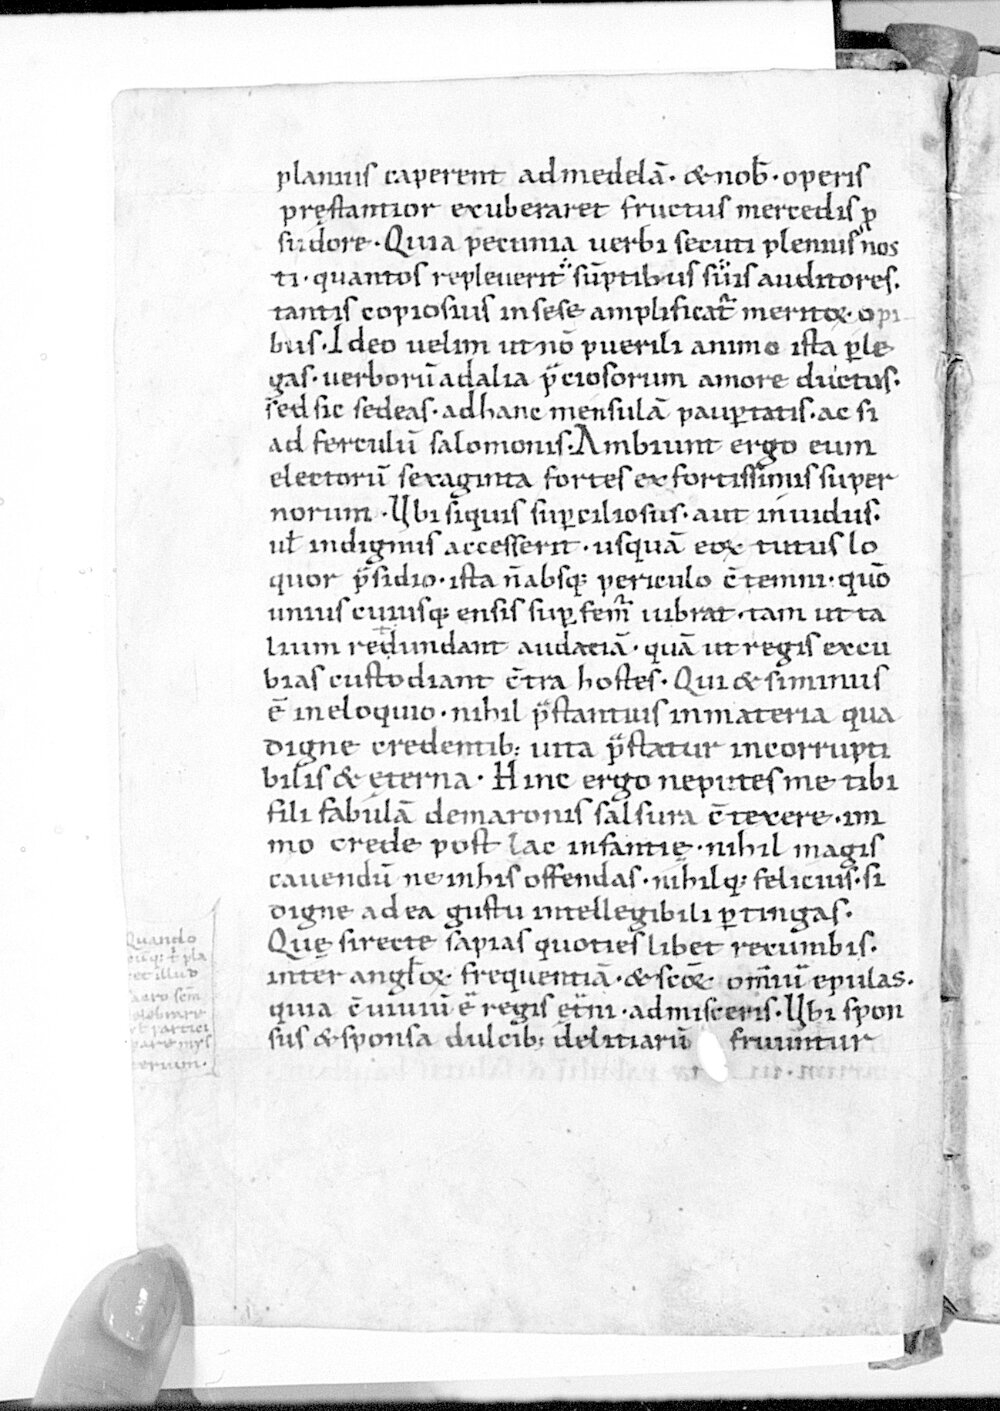 planius caperent ad medelā· & nob̄· operis
pręstantior exuberaret fructus mercedis ꝓ
sudore· Quia pecunia uerbi secuti plenius nos
ti· quantos repleuerit sūptibus suis auditores·
tantis copiosius in sese amplificat̃ meritoꝝ· opi
bus· Ideo uelim ut nō puerili animo ista ꝑle
gas· uerborū adalia p̄ciosorum amore ductus·
sed sic sedeas· ad hanc mensulā pauꝑtatis· ac si
ad ferculū salomonis· Ambiunt ergo eum
electorū sexaginta fortes ex fortissimis super
norum· Ubi siquis suꝑciliosus· aut inuidus·
ul̄ indignus accesserit· usquā eoꝝ tutus lo
quor p̄sidio· ista n̄ absq; periculo c̄temni· quō
unius cuiusq; ensis suꝑ fem̃ uibrat· tam ut ta
lium redundant audaciā· quā ut regis excu
bias custodiant c̄tra hostes· Qui & si minus
ē in eloquio· nihil p̄stantius in materia qua
digne credentib; uita p̄statur incorrupti
bilis & ęterna· Hinc ergo ne putes me tibi
fili fabulā de maronis salsura c̄texere· im
mo crede post lac infantię· nihil magis
cauendū ne in his offendas· nihilq; felicius· si
digne ad ea gustu intellegibili ꝑtingas·
Quę si recte sapias quoties libet recumbis·
inter angl̄oꝝ frequentiā· & sc̄oꝝ om̄iū epulas·
quia c̄uiuiū ē regis et̄ni· admisceris· Ubi spon
sus & sponsa dulcib; delitiarū fruuntur
Quando
pla
illud
sacro sem
partici
pare mys
terium·